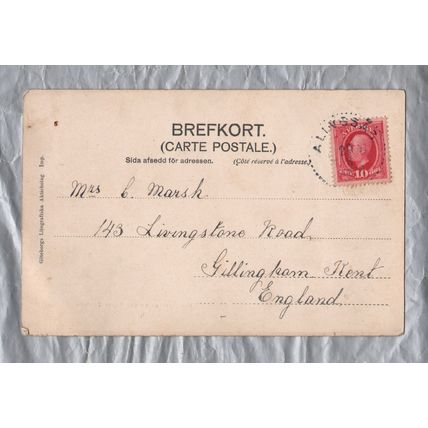 BREFKORT.
(CARTE POSTALE.)
Sida afsedd för adressen. (Côté réservé à l'adresse)
ALINGSÅS
10
Mrs C. Marsh
143 Livingstone Road,
Gillingham Kent
England.
Göteborgs Litografiska Aktiebolag Imp.